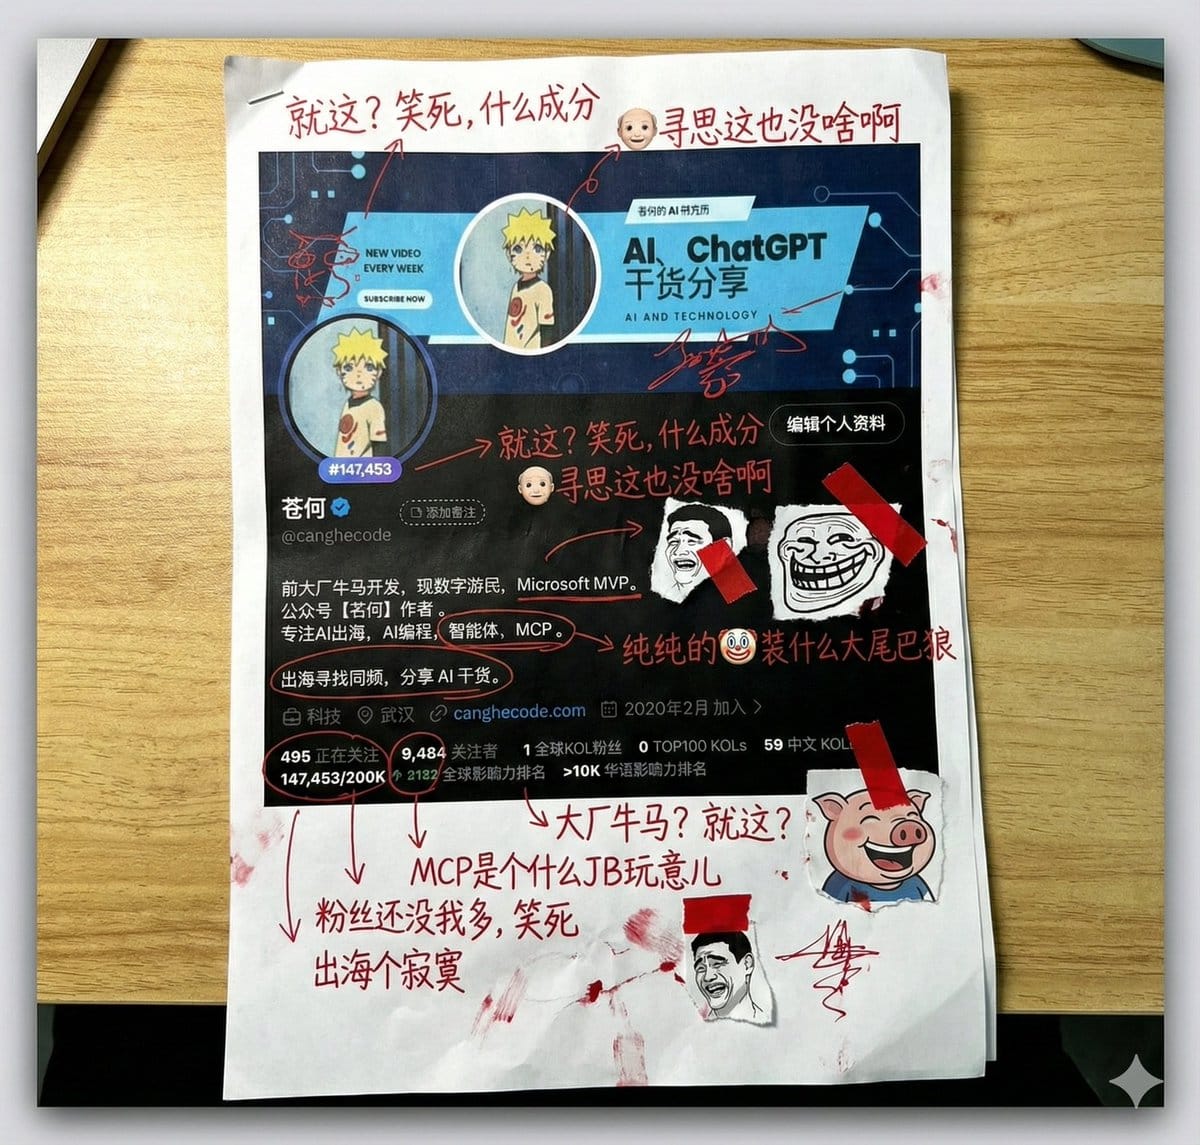 就这？笑死，什么成分
寻思这也没啥啊
NEW VIDEO
EVERY WEEK
SUBSCRIBE NOW
AI、ChatGPT
干货分享
AI AND TECHNOLOGY
就这？笑死，什么成分
寻思这也没啥啊
编辑个人资料
#147,453
苍何
添加备注
@canghecode
前大厂牛马开发，现数字游民，Microsoft MVP。
公众号【苍何】作者。
专注AI出海，AI编程，智能体，MCP。
纯纯的🤡装什么大尾巴狼
出海寻找同频，分享 AI 干货。
科技 武汉 canghecode.com 2020年2月 加入
495 正在关注 9,484 关注者 1 全球KOL粉丝 0 TOP100 KOLs 59 中文 KOL
147,453/200K ↑ 2182 全球影响力排名 >10K 华语影响力排名
大厂牛马？就这？
MCP是个什么JB玩意儿
粉丝还没我多，笑死
出海个寂寞